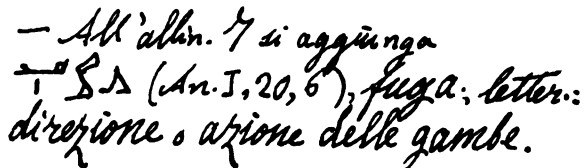 — All'allin. 7 si aggiunga
(An. I, 20, 6), fuga; letter.:
direzione o azione delle gambe.